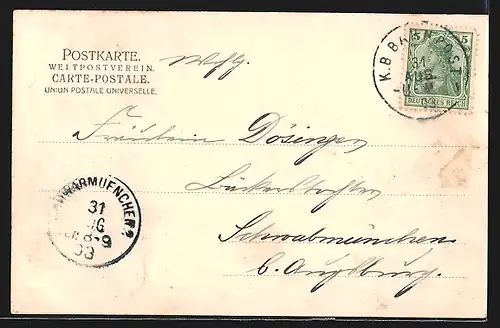 POSTKARTE.
WELTPOSTVEREIN.
CARTE-POSTALE.
UNION POSTALE UNIVERSELLE.
Wohlg.
K.B.BAHNPOST
31
AUG
5
DEUTSCHES REICH
Fräulein Dösinger
Bäckerstochter
Schwabmünchen
b. Augsburg.
SCHWABMUENCHEN 2
31
AUG
8-9
03